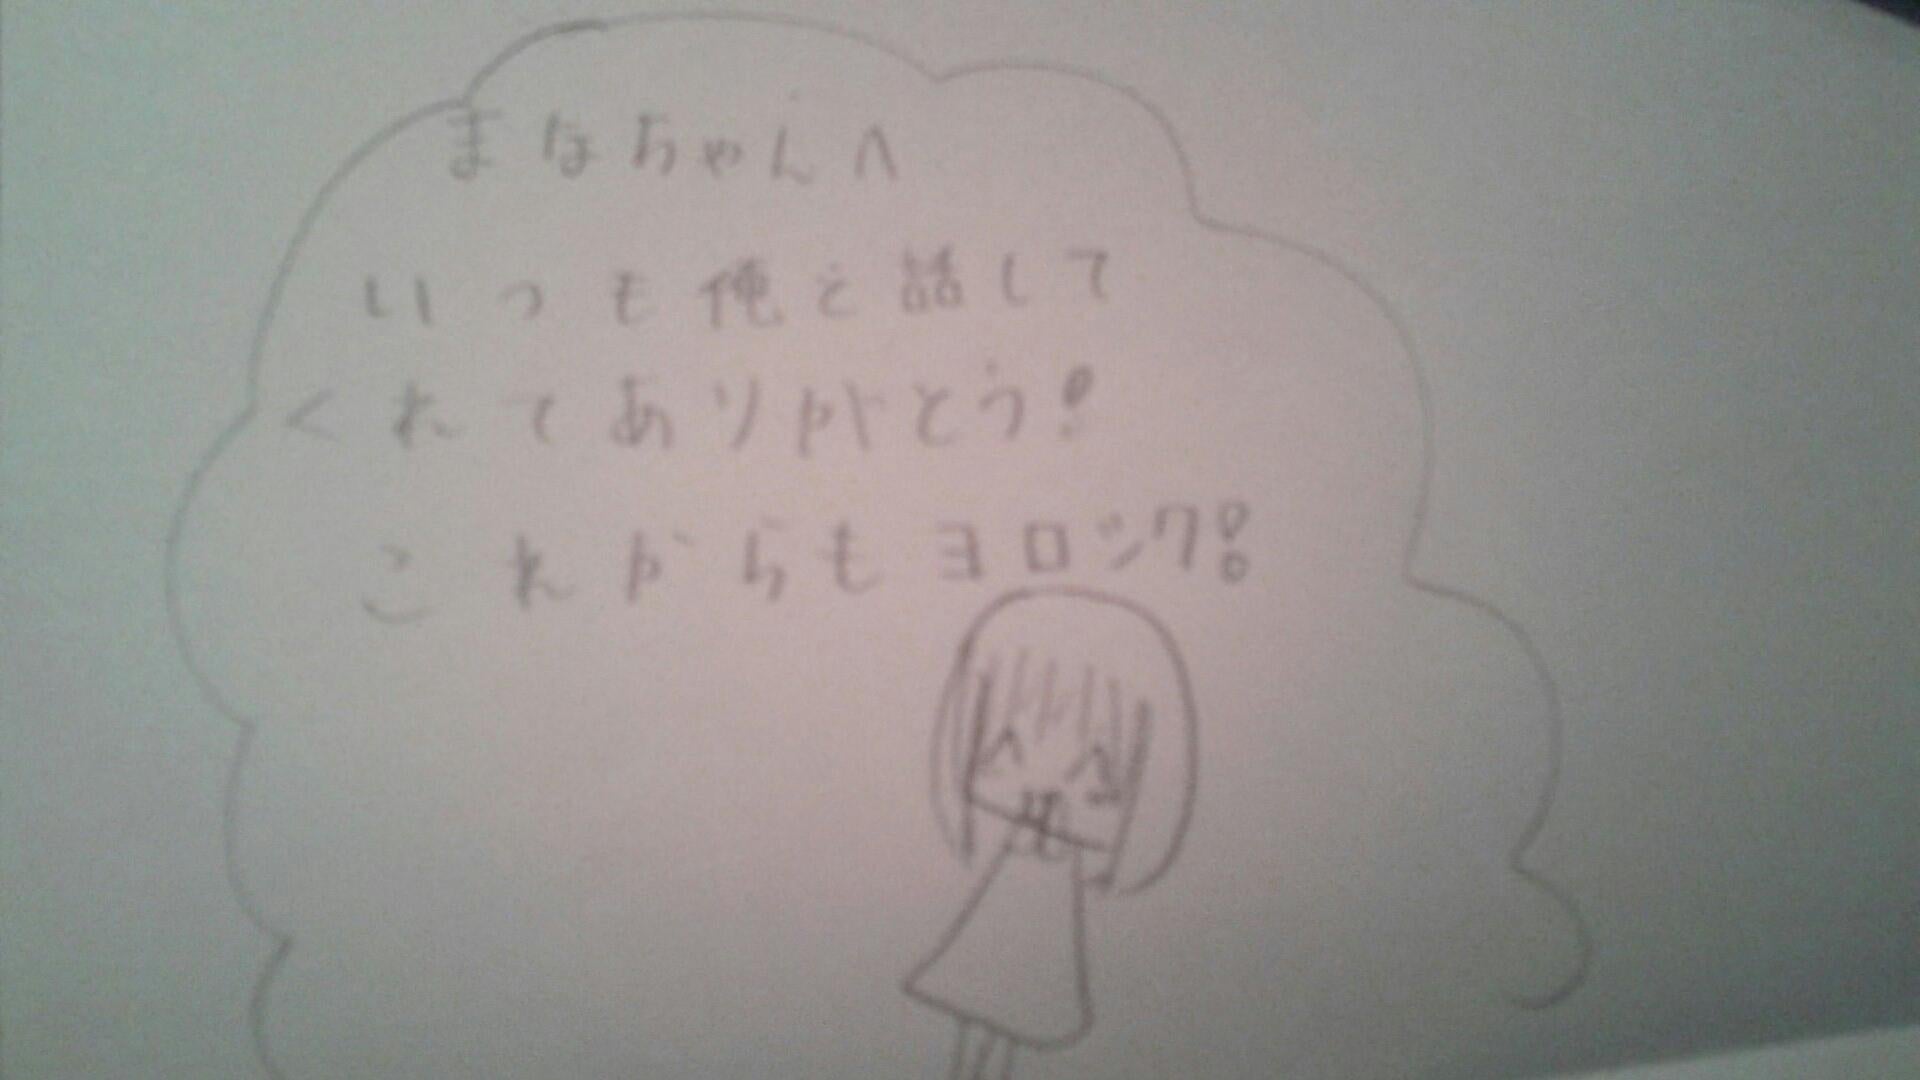 まなちゃんへ
いつも俺と話して
くれてありがとう!
これからもヨロシク!